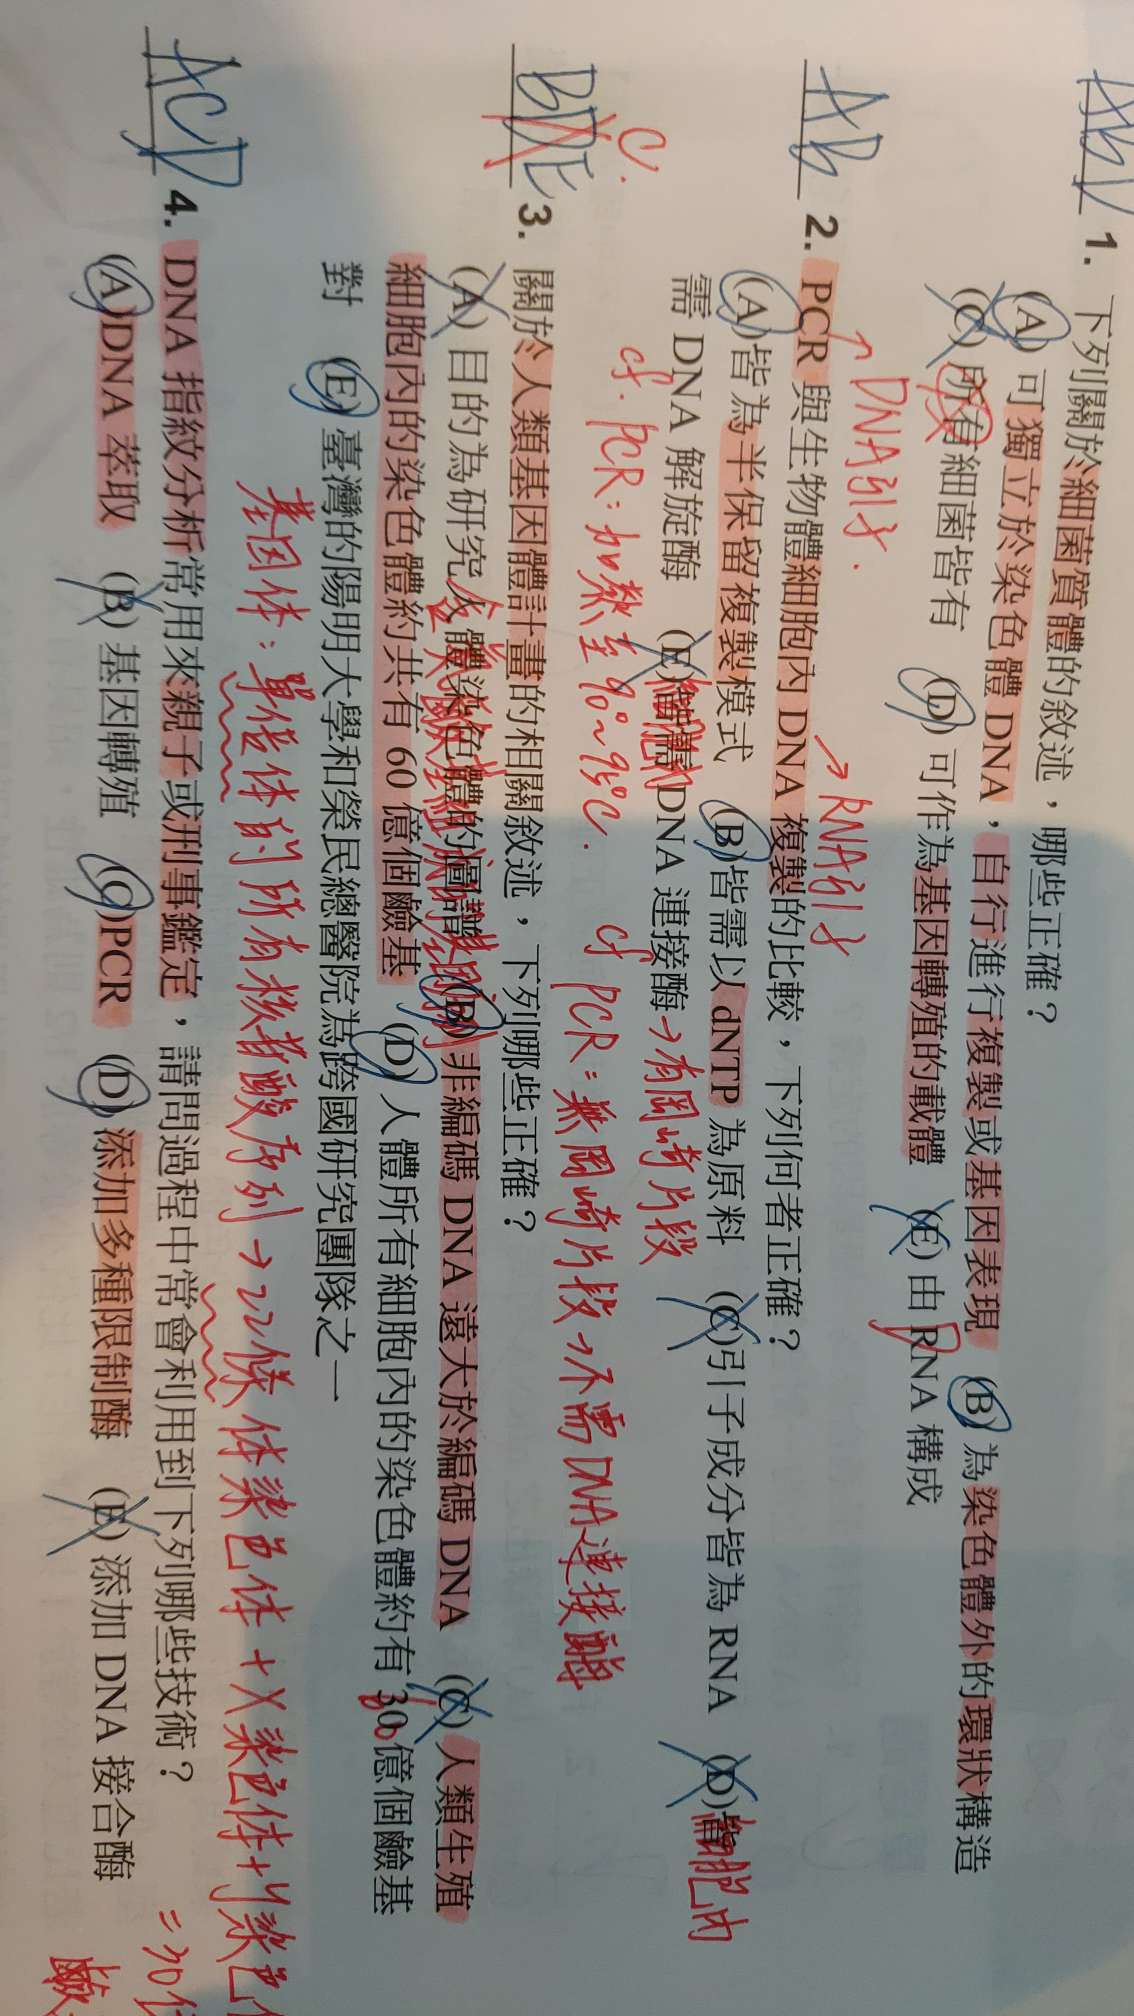 ABD 1. 下列關於細菌質體的敘述，哪些正確？
(A) 可獨立於染色體 DNA，自行進行複製或基因表現 (B) 為染色體外的環狀構造
(C) 所有細菌皆有 (D) 可作為基因轉殖的載體 (E) 由 RNA 構成
DNA引子. RNA引子
AB 2. PCR 與生物體細胞內 DNA 複製的比較，下列何者正確？
(A)皆為半保留複製模式 (B)皆需以 dNTP 為原料 (C)引子成分皆為 RNA (D)皆
細胞內
需 DNA 解旋酶 (E)皆需 DNA 連接酶→有岡崎片段
cf. PCR：加熱至90°~95°C. cf PCR：無岡崎片段→不需DNA連接酶
C.
BDE 3. 關於人類基因體計畫的相關敘述，下列哪些正確？
(A) 目的為研究人體染色體的圖譜 (B) 非編碼 DNA 遠大於編碼 DNA (C) 人類生殖
細胞內的染色體約共有 60 億個鹼基 (D) 人體所有細胞內的染色體約有 30 億個鹼基
60
對 (E) 臺灣的陽明大學和榮民總醫院為跨國研究團隊之一
基因体：單倍体的所有核苷酸序列→22條体染色体+X染色体+Y染色
=30億
鹼
ACD 4. DNA 指紋分析常用來親子或刑事鑑定，請問過程中常會利用到下列哪些技術？
(A)DNA 萃取 (B) 基因轉殖 (C)PCR (D) 添加多種限制酶 (E) 添加 DNA 接合酶